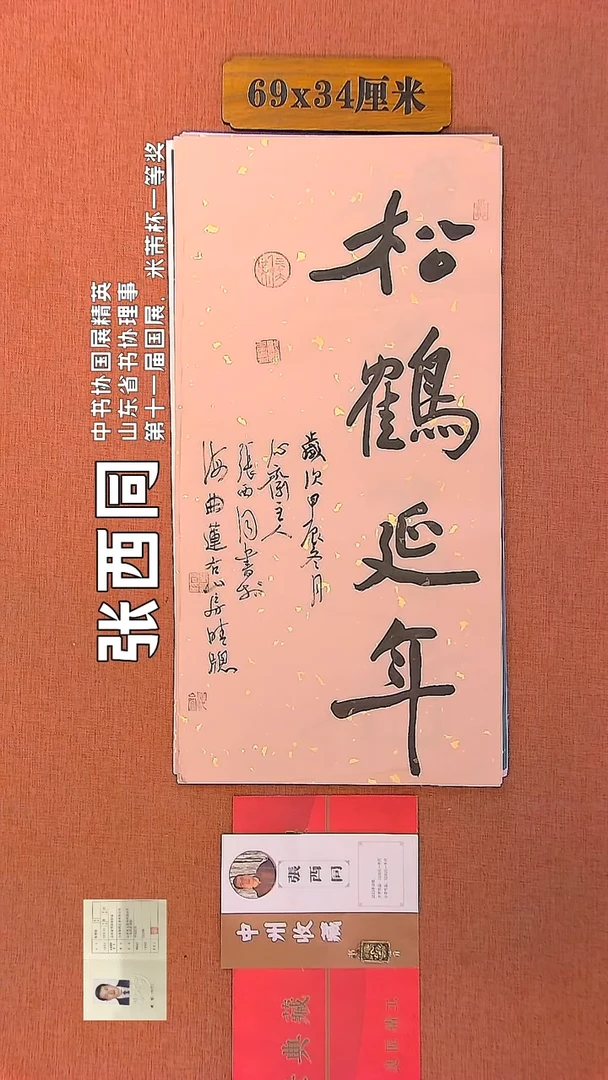 69x34厘米
松鹤延年
歲次甲辰冬月
心齋主人
張西同書於
海曲蓮右山房晴牕
张西同
中书协国展精英
山东省书协理事
第十一届国展、米芾杯一等奖
張西同
中州收藏
典藏